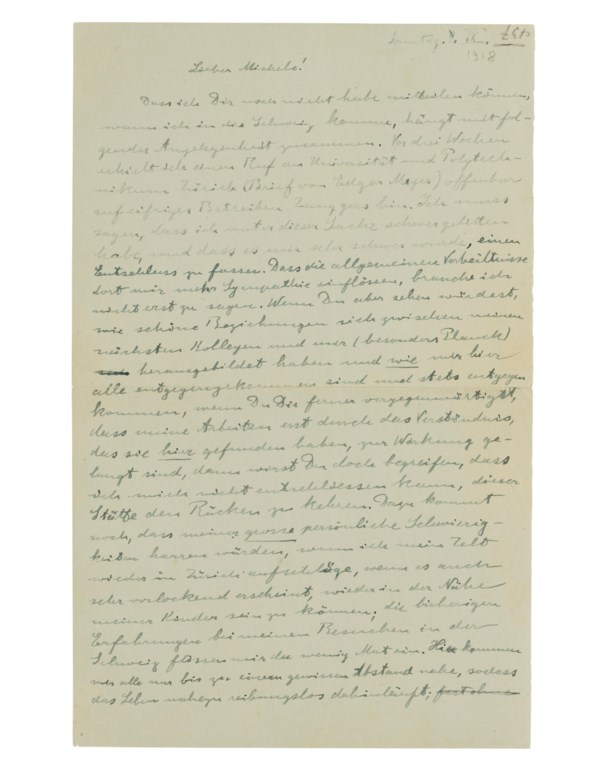 Sonntag.
1918
Lieber Michele!
Dass ich Dir noch nicht habe mitteilen können,
wann ich in die Schweiz komme, hängt mit fol-
gender Angelegenheit zusammen. Vor drei Wochen
erhielt ich einen Ruf an Universität und Polytech-
nikum Zürich (Brief von Edgar Meyer) offenbar
auf eifriges Betreiben Zanggers hin. Ich muss
sagen, dass ich unter dieser Sache schwer gelitten
habe, und dass es mir sehr schwer wurde, einen
Entschluss zu fassen. Dass die allgemeinen Verhältnisse
dort mir mehr Sympathie einflössen, brauche ich
nicht erst zu sagen. Wenn Du aber sehen würdest,
wie schöne Beziehungen sich zwischen meinen
nächsten Kollegen und mir (besonders Planck)
herausgebildet haben und wie mir hier
alle entgegengekommen sind und stets entgegen
kommen, wenn Du Dir ferner vergegenwärtigst,
dass meine Arbeiten erst durch das Verständnis,
das sie hier gefunden haben, zur Wirkung ge-
langt sind, dann wirst Du doch begreifen, dass
ich mich nicht entschliessen kann, dieser
Stätte den Rücken zu kehren. Dazu kommt
noch, dass meiner grosse persönliche Schwierig-
keiten harren würden, wenn ich mein Zelt
wieder in Zürich aufschlüge, wenn es auch
sehr verlockend erscheint, wieder in der Nähe
meiner Kinder sein zu können; die bisherigen
Erfahrungen bei meinen Besuchen in der
Schweiz flössen mir da wenig Mut ein. Hier kommen
mir alle nur bis zu einem gewissen Abstand nahe, sodass
das Leben nahezu reibungslos dahinläuft; fast ohne